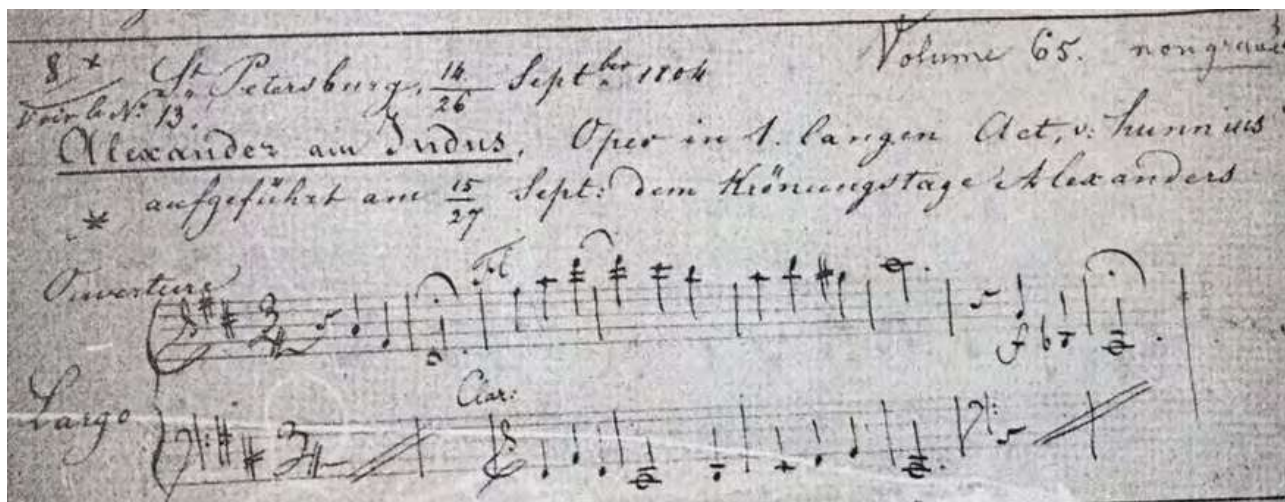 Volume 65. nongravé
8 * St. Petersburg, 14/26 Septber 1804
Voir le No. 13.
Alexander am Indus, Oper in 1. langen Act, v: hunnius
* aufgeführt am 15/27 Sept: dem Krönungstage Alexanders
Ouverture
Fl
3/4
f
Largo
Clar:
3/4